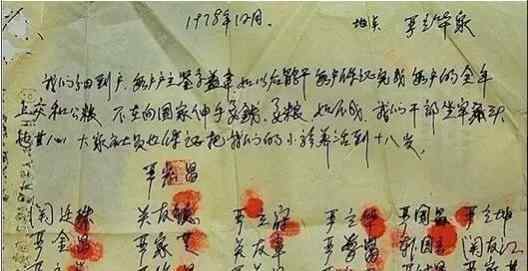 1978年12月. 地点 严立华家
我们分田到户,每户户主签字盖章,如以后能干每户保证完成每户的全年
上交和公粮 不在向国家伸手要钱,要粮 如不成,我们干部坐牢杀头
也甘心 大家社员也保证把我们的小孩养活到十八岁。
严宏昌
关廷珠 关友德 严立符 严立华 严国昌 严立坤
严金昌 严家芝 关友章 严学昌 韩国云 关友江